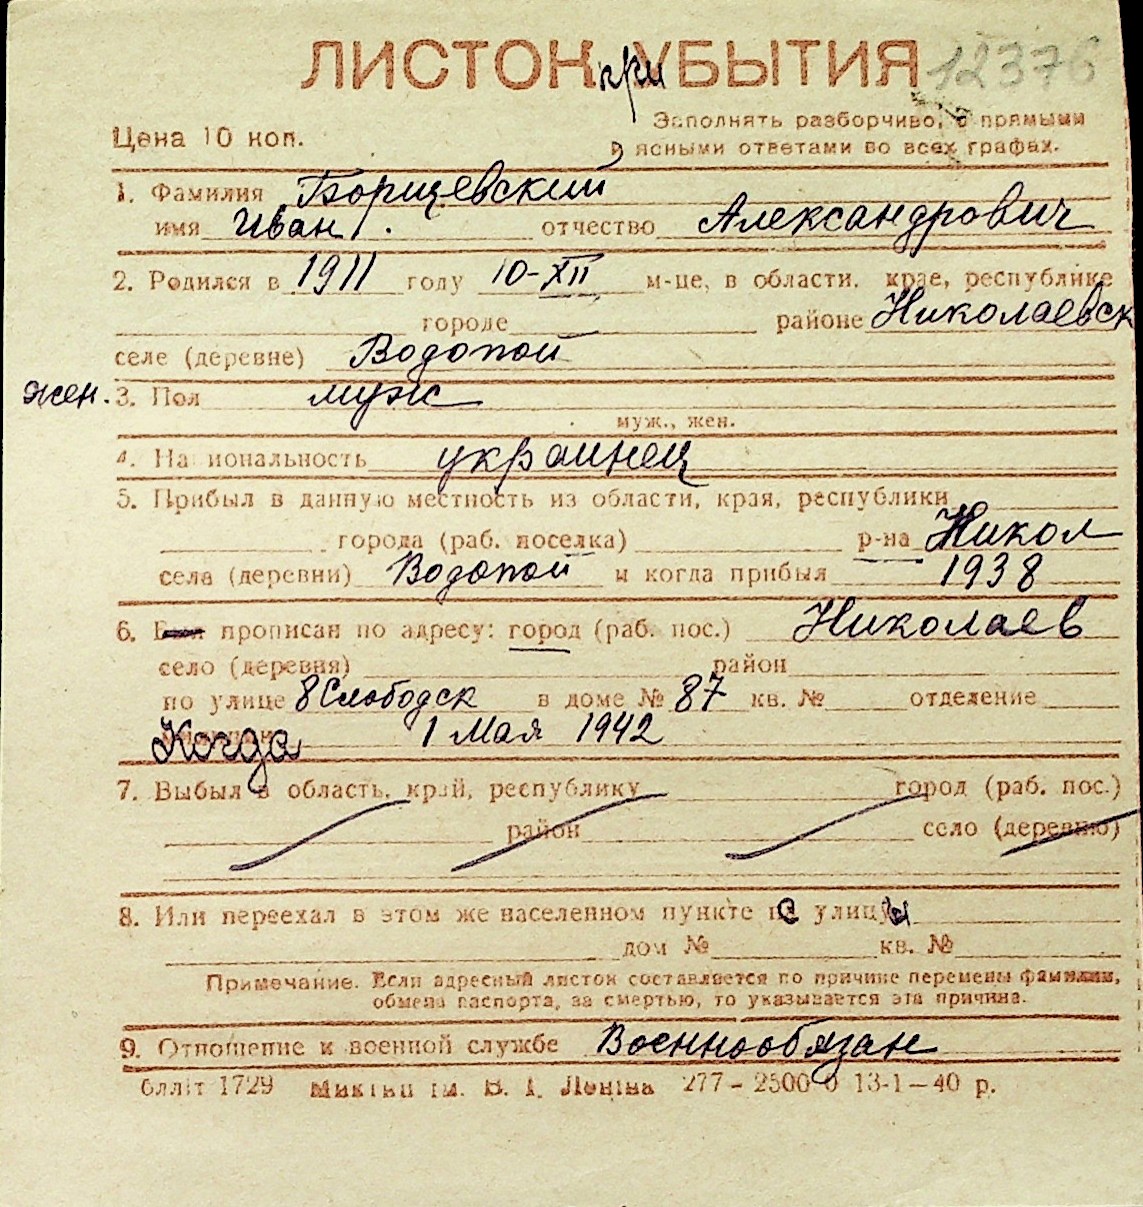 ЛИСТОК при УБЫТИЯ 12376
Цена 10 коп.
Заполнять разборчиво, с прямыми
и ясными ответами во всех графах.
1. Фамилия Борщевский
имя Иван отчество Александрович
2. Родился в 1911 году 10-XII м-це, в области, крае, республике
городе районе Николаевск
селе (деревне) Водопой
жен. 3. Пол муж
муж., жен.
4. Национальность украинец
5. Прибыл в данную местность из области, края, республики
города (раб. поселка) р-на Никол
села (деревни) Водопой и когда прибыл 1938
6. Был прописан по адресу: город (раб. пос.) Николаев
село (деревня) район
по улице 8 Слободск в доме № 87 кв. № отделение
Когда 1 Мая 1942
7. Выбыл в область, край, республику город (раб. пос.)
район село (деревню)
8. Или переехал в этом же населенном пункте с улицы
дом № кв. №
Примечание. Если адресный листок составляется по причине перемены фамилии,
обмена паспорта, за смертью, то указывается эта причина.
9. Отношение к военной службе Военнообязан
блліт 1729 ім. В. І. Леніна 277–2500 13-1–40 р.